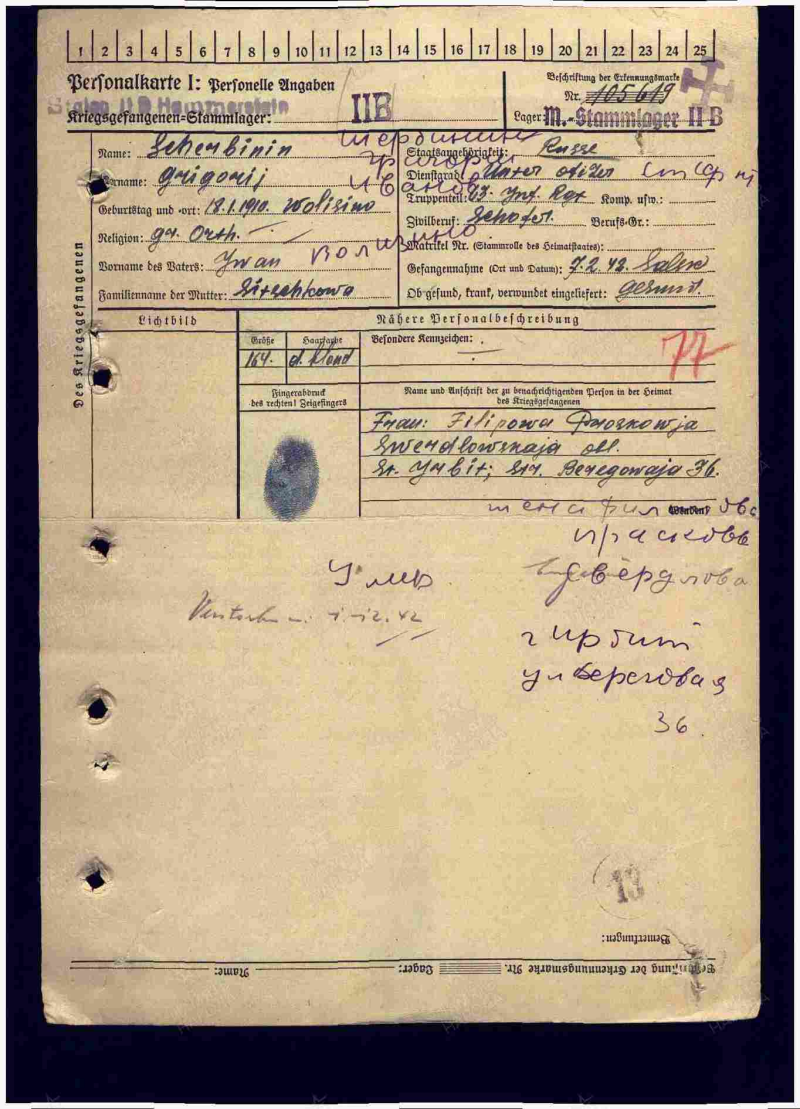 1 2 3 4 5 6 7 8 9 10 11 12 13 14 15 16 17 18 19 20 21 22 23 24 25
Personalkarte I: Personelle Angaben
Beschriftung der Erkennungsmarke
Stalag II B Hammerstein
Nr. 105619
Kriegsgefangenen-Stammlager: II B
Lager: M.-Stammlager II B
Des Kriegsgefangenen
Name: Scherbinin
Щербинин
Vorname: Grigorij
Григорий
Иванов
Geburtstag und -ort: 18.1.1910. Wolisino
Religion: gr. Orth.
Волизино
Vorname des Vaters: Iwan
Familienname der Mutter:
Staatsangehörigkeit: Russe
Dienstgrad: Unter ofizer
Truppenteil: 63. Inf. Rgt Komp. usw.:
Zivilberuf: Schofer. Berufs-Gr.:
Matrikel Nr. (Stammrolle des Heimatstaates):
Gefangennahme (Ort und Datum): 7.2.42.
Ob gesund, krank, verwundet eingeliefert: gesund.
Lichtbild
Nähere Personalbeschreibung
Größe
Haarfarbe
164.
d. blond
Besondere Kennzeichen: —
77
Fingerabdruck
des rechten! Zeigefingers
Name und Anschrift der zu benachrichtigenden Person in der Heimat
des Kriegsgefangenen
Frau: Filipowa Proskowja
Swerdlowskaja obl.
St. Irbit; Str. Beregowaja 36.
Жена Филипова
Прасковь
Свердлова
Умер
1-12.42
г Ирбит
ул Береговая
36.
13
Bemerkungen:
Beschriftung der Erkennungsmarke Nr. Lager: Name: